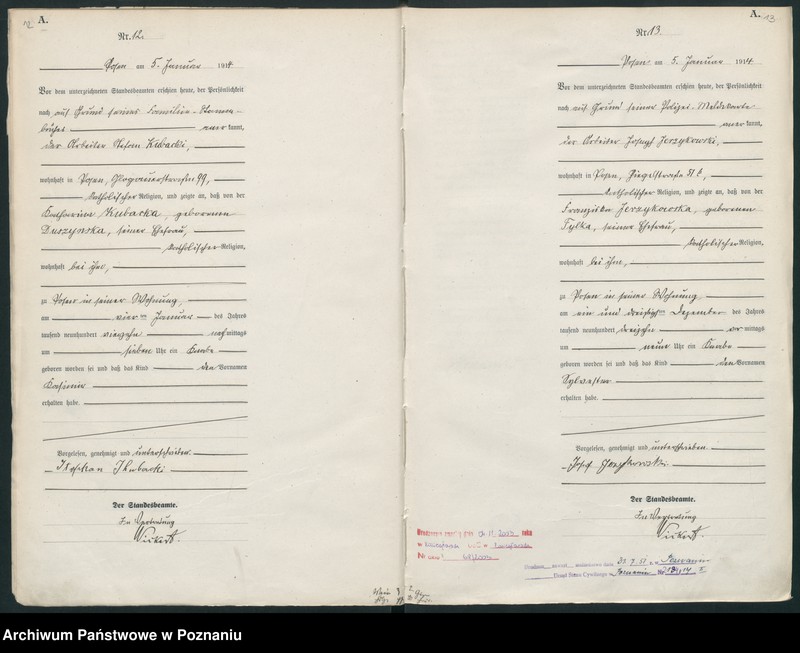 12 A.
Nr. 12.
Posen am 5. Januar 1914
Vor dem unterzeichneten Standesbeamten erschien heute, der Persönlichkeit
nach auf Grund seines Familien-Stamm-
buches anerkannt,
der Arbeiter Kubacki,
wohnhaft in Posen, Glogauerstraße 99,
katholischer Religion, und zeigte an, daß von der
Katharina Kubacka, geborenen
Duszynska, seiner Ehefrau,
katholischer Religion,
wohnhaft bei ihm,
zu Posen in seiner Wohnung,
am vier ten Januar des Jahres
tausend neunhundert vierzehn nachmittags
um sieben Uhr ein Knabe
geboren worden sei und daß das Kind den Vornamen
Kasimir
erhalten habe.
Vorgelesen, genehmigt und unterschrieben.
Kubacki
Der Standesbeamte.
In Vertretung
A. 13
Nr. 13.
Posen am 5. Januar 1914
Vor dem unterzeichneten Standesbeamten erschien heute, der Persönlichkeit
nach auf Grund seiner Polizei-Meldekarte
anerkannt,
der Arbeiter Joseph Jerzykowski,
wohnhaft in Posen,
katholischer Religion, und zeigte an, daß von der
Franziska Jerzykowska, geborenen
Tylka, seiner Ehefrau,
katholischer Religion,
wohnhaft bei ihm,
zu Posen in seiner Wohnung
am ein und dreißigsten Dezember des Jahres
tausend neunhundert dreizehn vormittags
um neun Uhr ein Knabe
geboren worden sei und daß das Kind den Vornamen
Sylwester
erhalten habe.
Vorgelesen, genehmigt und unterschrieben.
Josef Jerzykowski
Der Standesbeamte.
In Vertretung
Archiwum Państwowe w Poznaniu